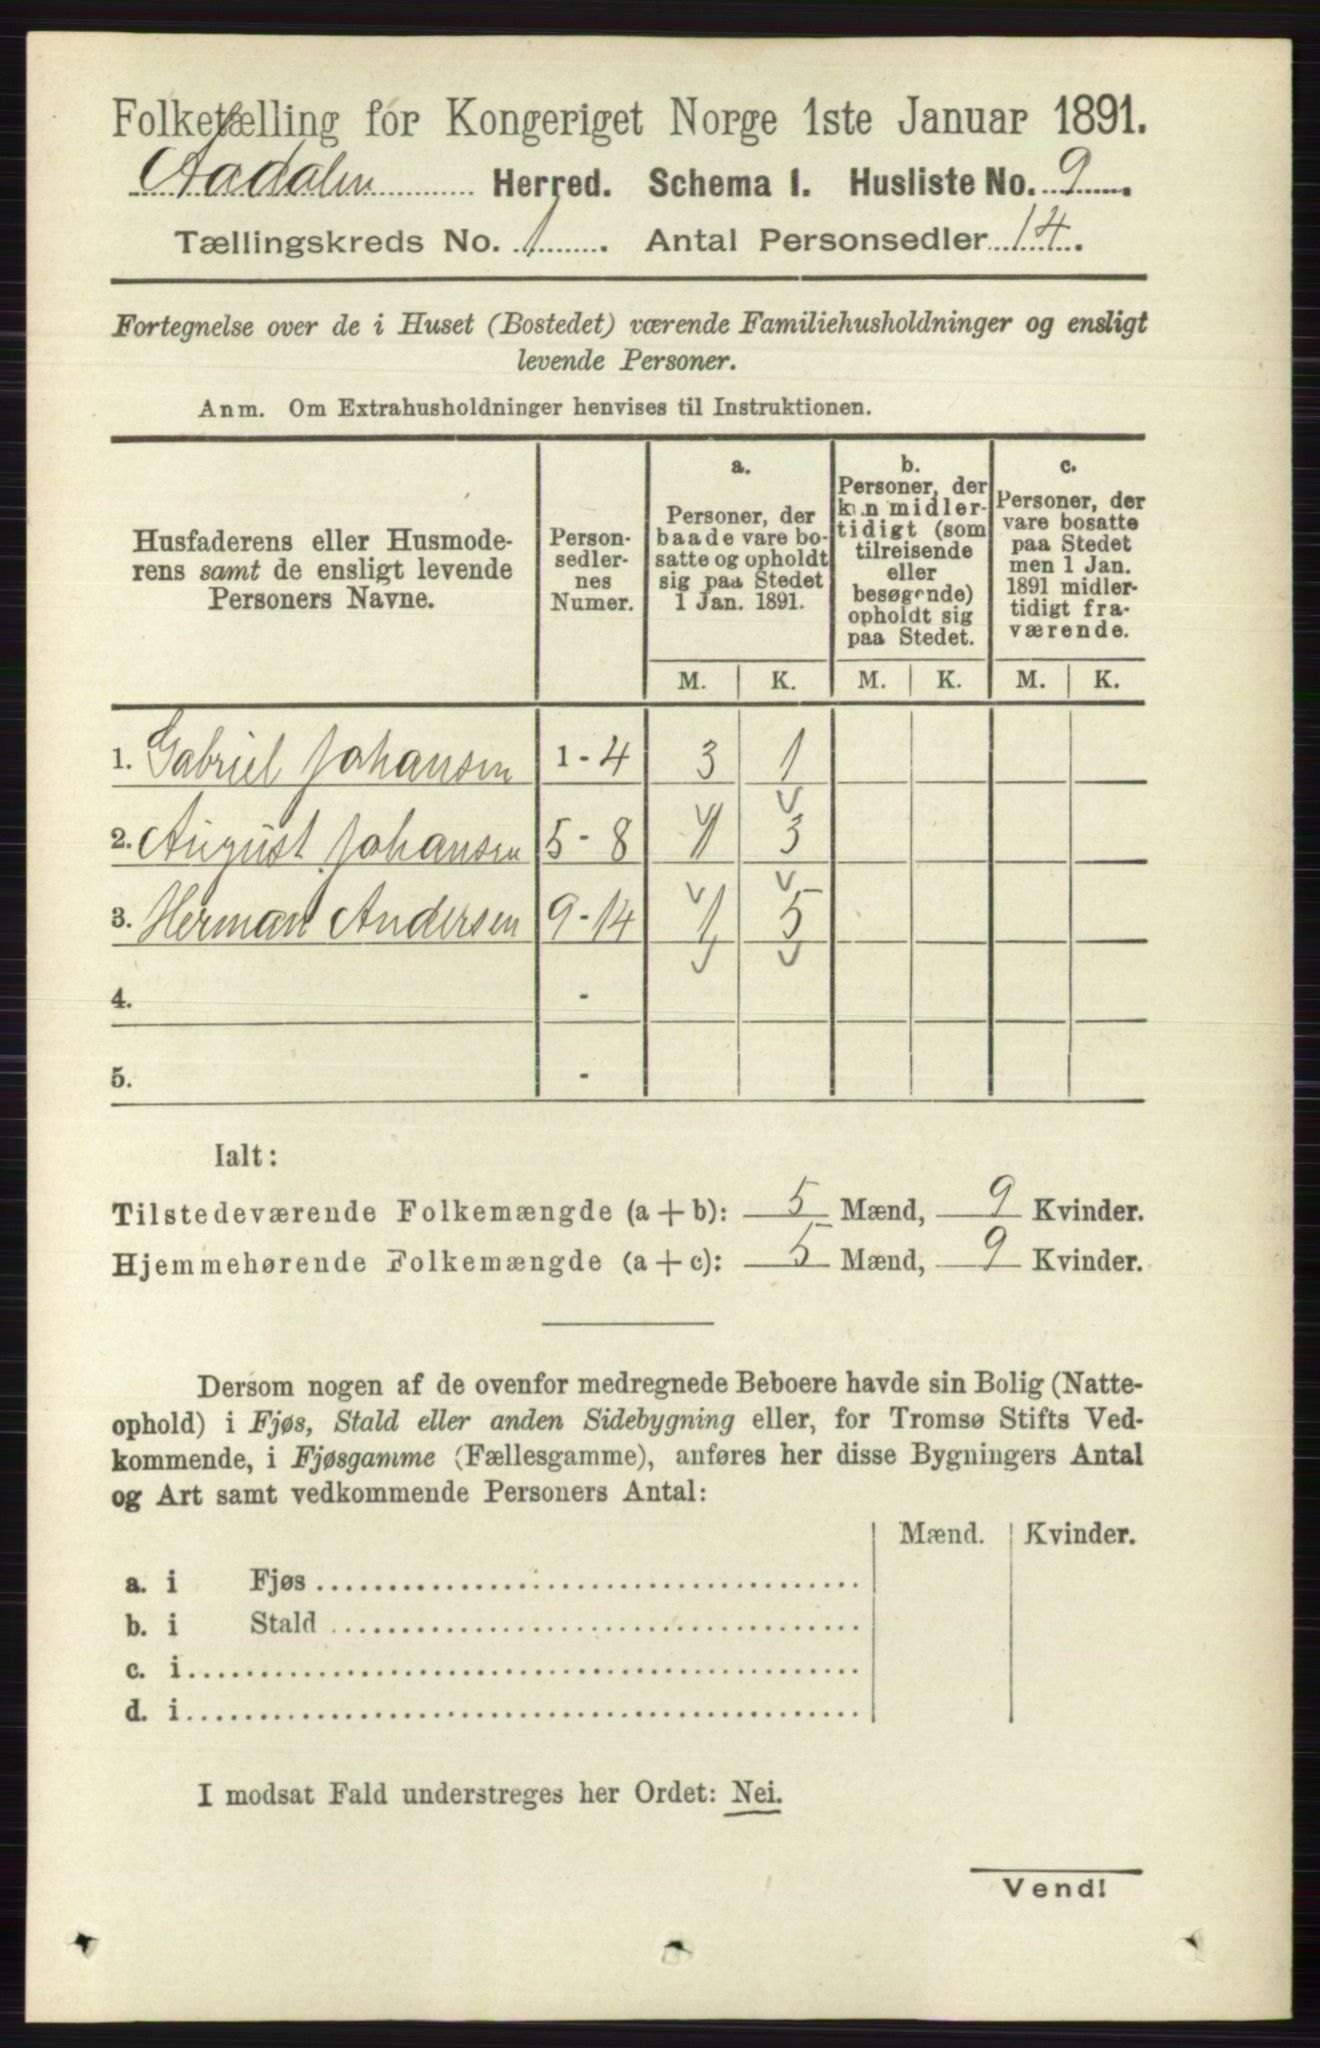 Folketælling for Kongeriget Norge 1ste Januar 1891.
Aadalen Herred. Schema 1. Husliste No. 9.
Tællingskreds No. 1. Antal Personsedler 14.
Fortegnelse over de i Huset (Bostedet) værende Familiehusholdninger og ensligt
levende Personer.
Anm. Om Extrahusholdninger henvises til Instruktionen.
Husfaderens eller Husmode-
rens samt de ensligt levende
Personers Navne.
Person-
sedler-
nes
Numer.
a.
Personer, der
baade vare bo-
satte og opholdt
sig paa Stedet
1 Jan. 1891.
b.
Personer, der
kun midler-
tidigt (som
tilreisende
eller
besøgende)
opholdt sig
paa Stedet.
c.
Personer, der
vare bosatte
paa Stedet
men 1 Jan.
1891 midler-
tidigt fra-
værende.
M. K. M. K. M. K.
1. Gabriel Johansen 1 - 4 3 1
2. August Johansen 5 - 8 1 3
3. Herman Andersen 9 - 14 1 5
4. -
5. -
Ialt:
Tilstedeværende Folkemængde (a + b): 5 Mænd, 9 Kvinder.
Hjemmehørende Folkemængde (a + c): 5 Mænd, 9 Kvinder.
Dersom nogen af de ovenfor medregnede Beboere havde sin Bolig (Natte-
ophold) i Fjøs, Stald eller anden Sidebygning eller, for Tromsø Stifts Ved-
kommende, i Fjøsgamme (Fællesgamme), anføres her disse Bygningers Antal
og Art samt vedkommende Personers Antal:
Mænd. Kvinder.
a. i Fjøs
b. i Stald
c. i
d. i
I modsat Fald understreges her Ordet: Nei.
Vend!